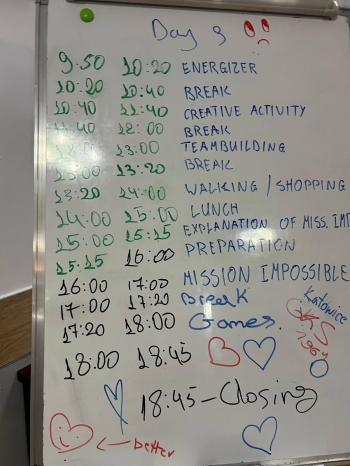 Day 3
9:50 10:20 ENERGIZER
10:20 10:40 BREAK
10:40 11:40 CREATIVE ACTIVITY
11:40 12:00 BREAK
12:00 13:00 TEAMBUILDING
13:00 13:20 BREAK
13:20 14:00 WALKING / SHOPPING
14:00 15:00 LUNCH
15:00 15:15 EXPLANATION OF MISS. IMP
15:15 16:00 PREPARATION
16:00 17:00 MISSION IMPOSSIBLE
17:00 17:20 Break
17:20 18:00 Games.
Katowice
GKS
1964
18:00 18:45
18:45 - Closing
better